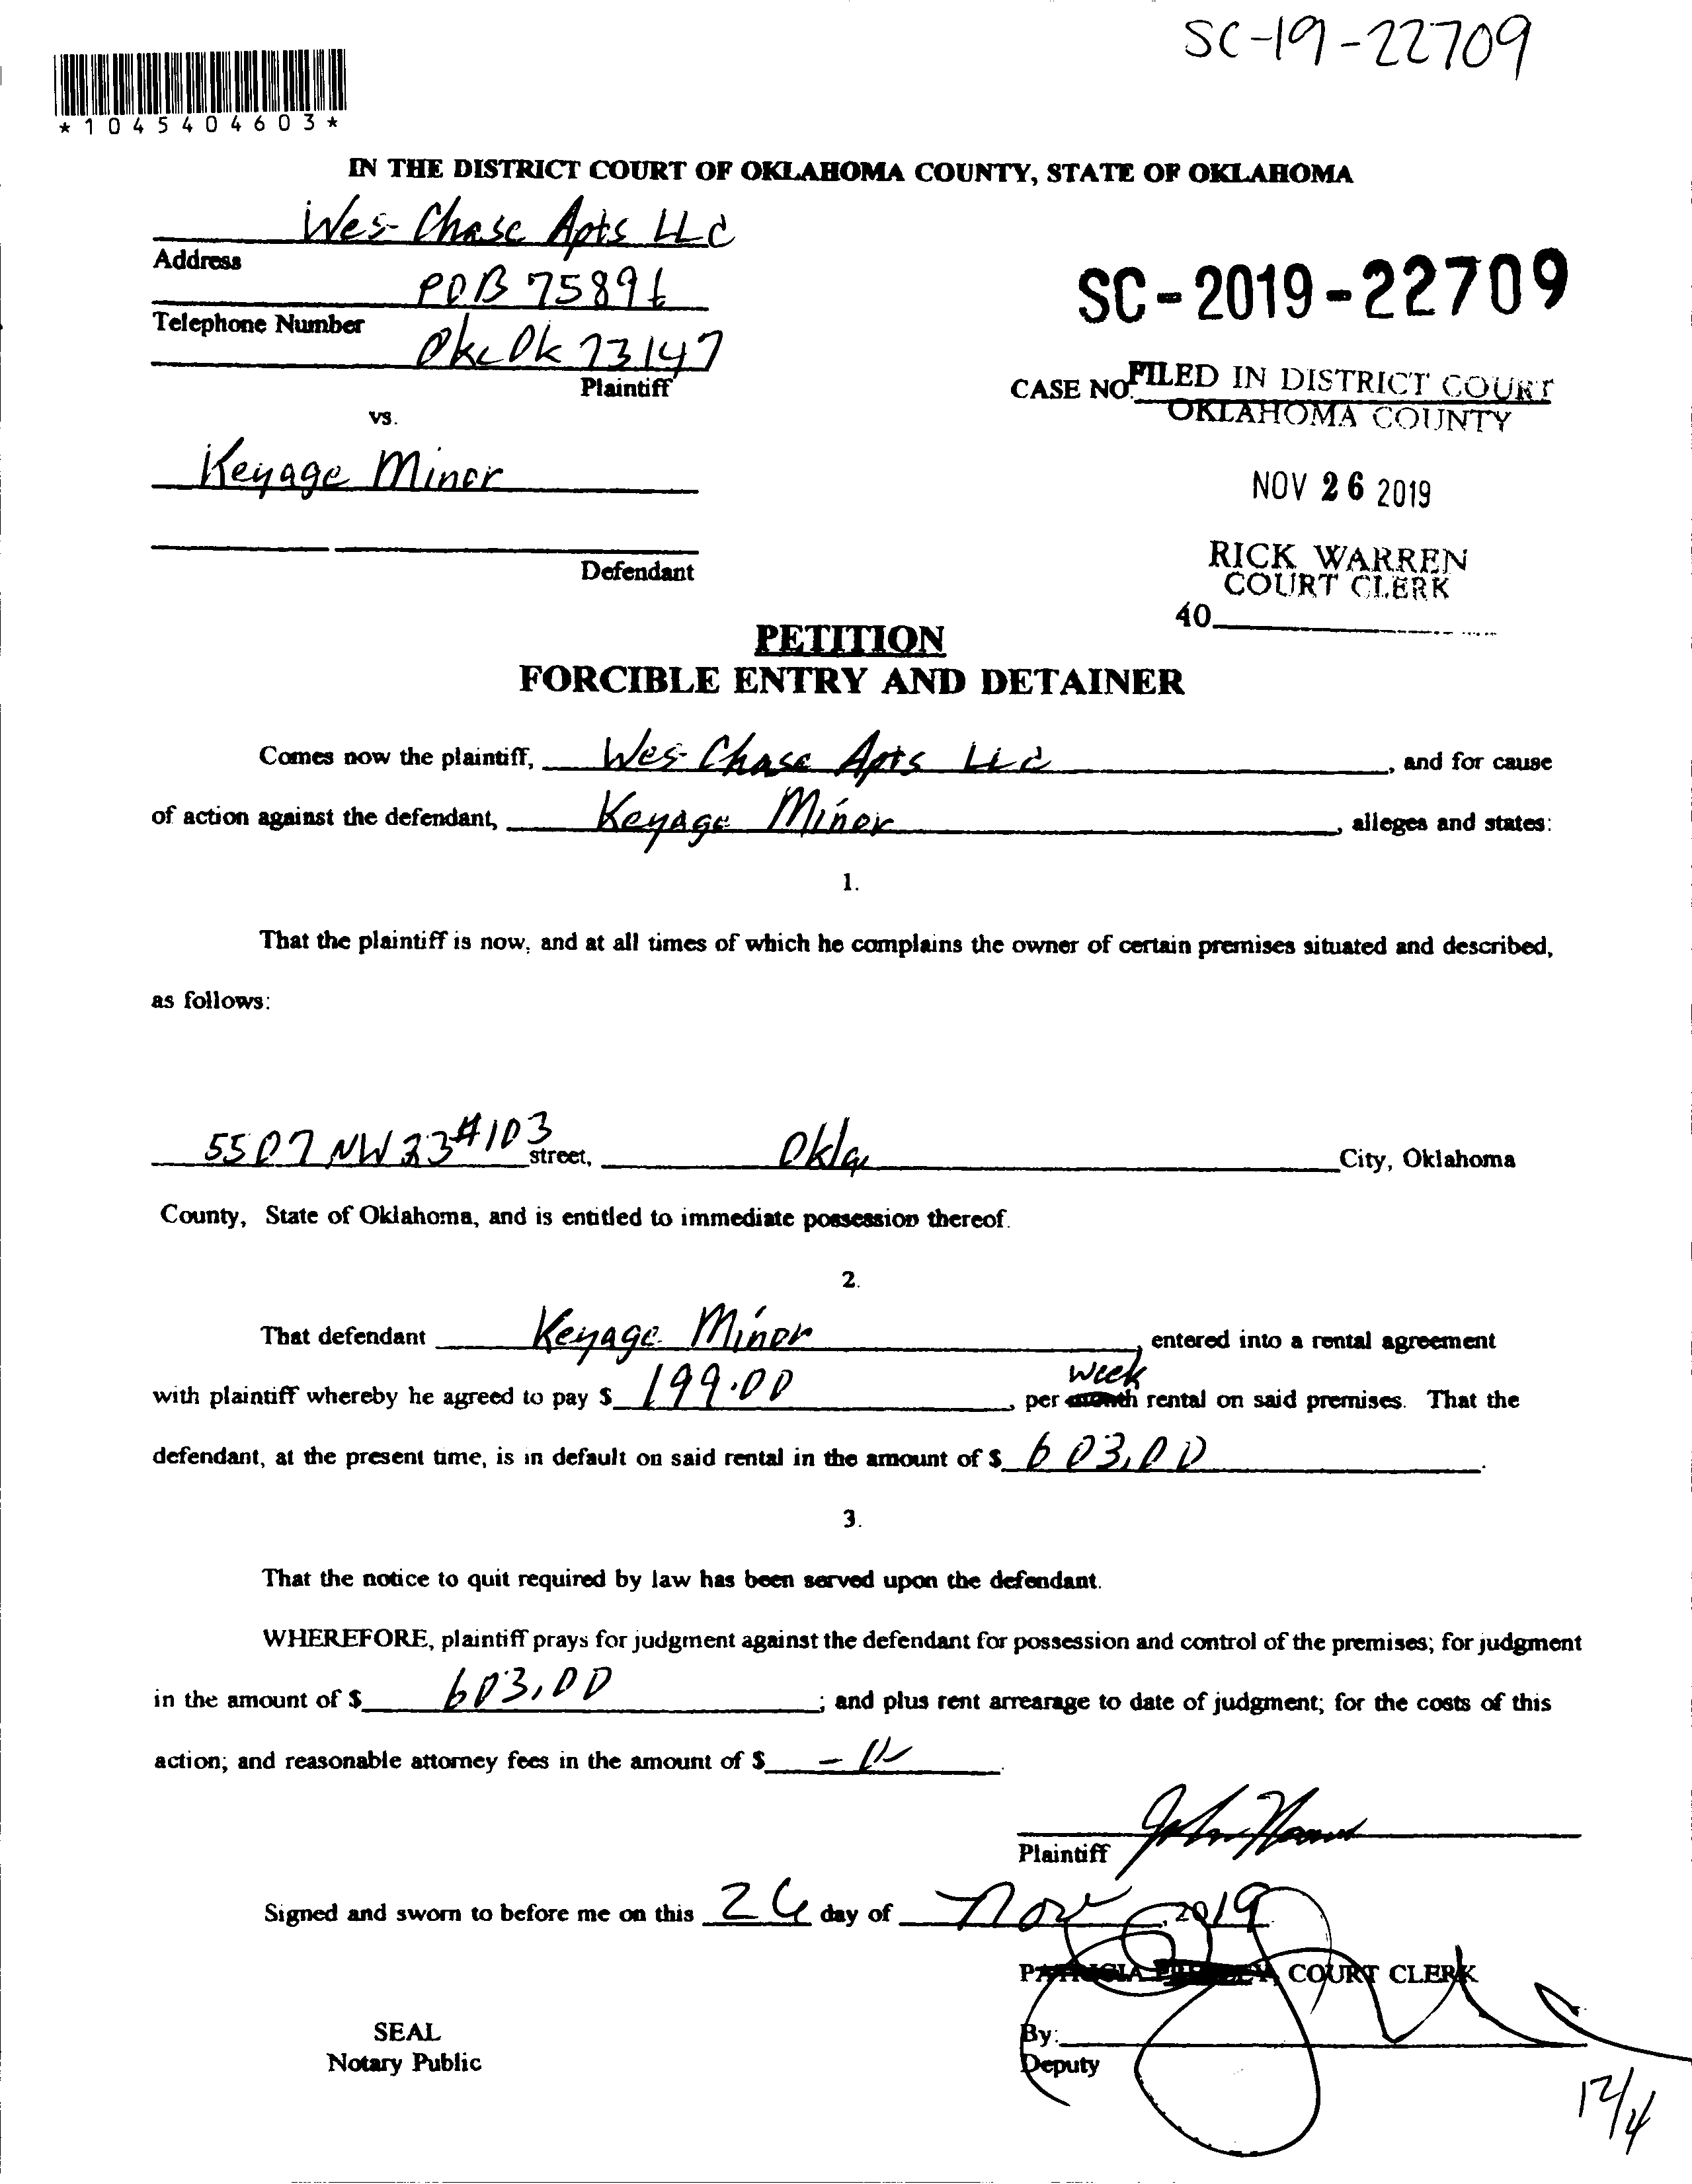 SC-19-22709
*1045404603*
IN THE DISTRICT COURT OF OKLAHOMA COUNTY, STATE OF OKLAHOMA
Wes-Chase Apts LLC
Address
POB 75896
SC-2019-22709
Telephone Number
Okc Ok 73147
Plaintiff
CASE NO. FILED IN DISTRICT COURT
OKLAHOMA COUNTY
vs.
Keyage Minor
NOV 26 2019
Defendant
RICK WARREN
COURT CLERK
40
PETITION
FORCIBLE ENTRY AND DETAINER
Comes now the plaintiff, Wes-Chase Apts LLC, and for cause
of action against the defendant, Keyage Minor, alleges and states:
1.
That the plaintiff is now, and at all times of which he complains the owner of certain premises situated and described,
as follows:
5507 NW 23 #103 street, Okla City, Oklahoma
County, State of Oklahoma, and is entitled to immediate possession thereof.
2.
That defendant Keyage Minor, entered into a rental agreement
week
with plaintiff whereby he agreed to pay $ 199.00, per month rental on said premises. That the
defendant, at the present time, is in default on said rental in the amount of $ 603.00.
3.
That the notice to quit required by law has been served upon the defendant.
WHEREFORE, plaintiff prays for judgment against the defendant for possession and control of the premises; for judgment
in the amount of $ 603.00; and plus rent arrearage to date of judgment; for the costs of this
action; and reasonable attorney fees in the amount of $
Plaintiff
Signed and sworn to before me on this 26 day of Nov, 2019
PATRICIA PRESLEY, COURT CLERK
SEAL
Notary Public
By:
Deputy
12/4